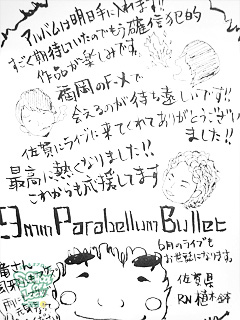 アルバムは明日手に入れます!!
すごく期待していたのでもう確信犯的
作品が楽しみです。
福岡のF-Xで
会えるのが待ち遠しいです!!
佐賀にライブに来てくれてありがとうござい
ました!!
最高に熱くなりました!!
これからも応援してます
9mm Parabellum Bullet
6月のライブも
お世話になります。
佐賀県
RN 植木鉢